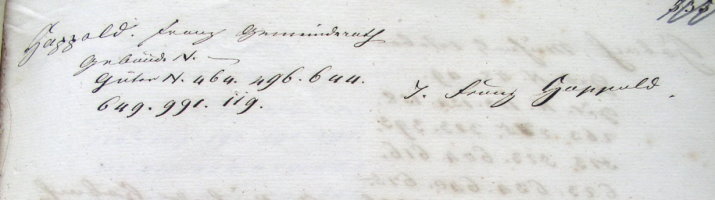 Happold. Franz Gemeinderath
Gebäude N. —
Güter N. 464. 496. 644.
649. 991. 119.
T. Franz Happold.